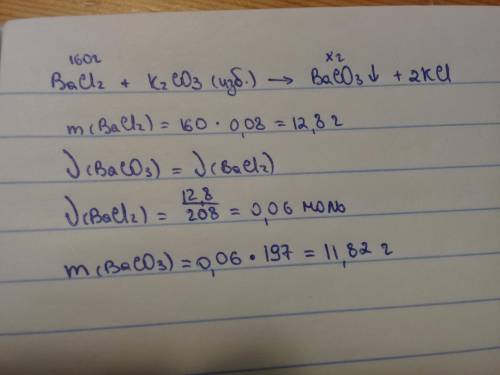 160г х г
BaCl₂ + K₂CO₃ (изб.) → BaCO₃↓ + 2KCl
m(BaCl₂) = 160 · 0,08 = 12,8 г
ν(BaCO₃) = ν(BaCl₂)
ν(BaCl₂) = 12,8/208 = 0,06 моль
m(BaCO₃) = 0,06 · 197 = 11,82 г